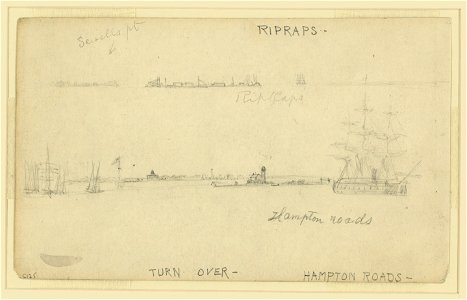 Sewells pt
RIPRAPS -
Rip Raps
Hampton roads
TURN OVER -
HAMPTON ROADS -